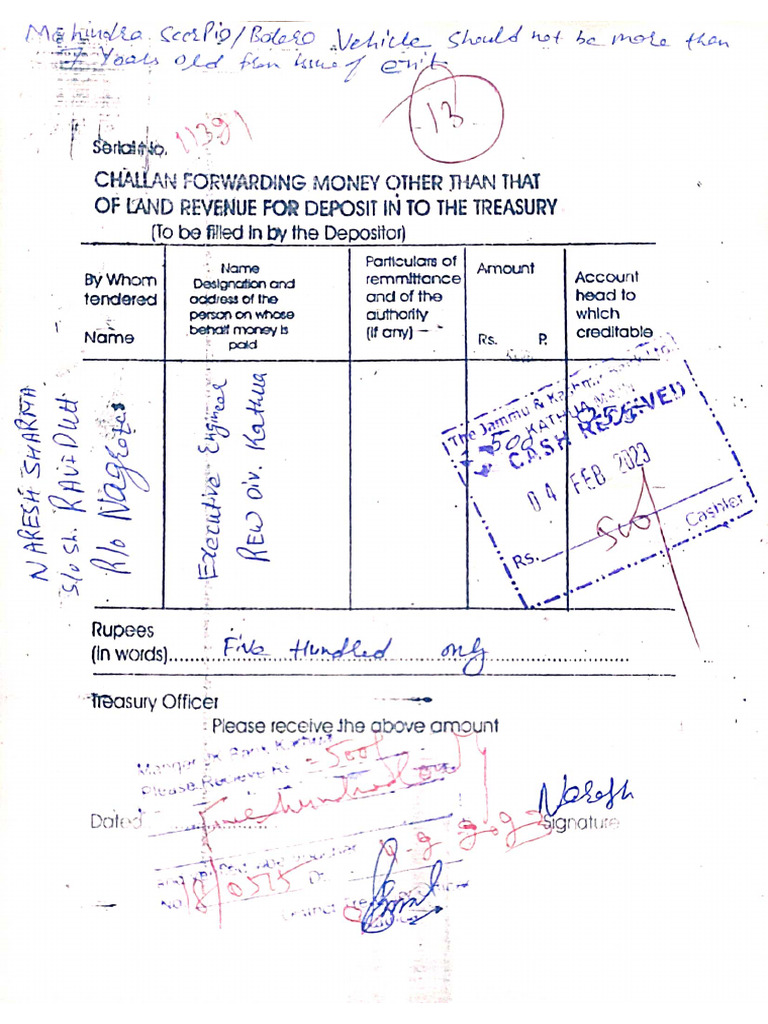 Mahindra Scorpio/Bolero Vehicle should not be more than
7 Years old from issue of
13
Serial No. 11391
CHALLAN FORWARDING MONEY OTHER THAN THAT
OF LAND REVENUE FOR DEPOSIT IN TO THE TREASURY
(To be filled in by the Depositor)
By Whom
tendered
Name
Name
Designation and
address of the
person on whose
behalf money is
paid
Particulars of
remmittance
and of the
authority
(if any) –
Amount
Rs. P.
Account
head to
which
creditable
NARESH SHARMA
S/o Sh. RAVI DUTT
R/o
Executive Engineer
REW Div. Kathua
500
The Jammu & Kashmir Bank Ltd.
KATHUA MAIN
CASH RECEIVED
04 FEB 2023
Rs. 500
Cashier
Rupees
(In words) Five Hundred only
Treasury Officer
Please receive the above amount
Please Receive Rs = 500/
Five hundred only
Dated
Naresh
Signature
No.